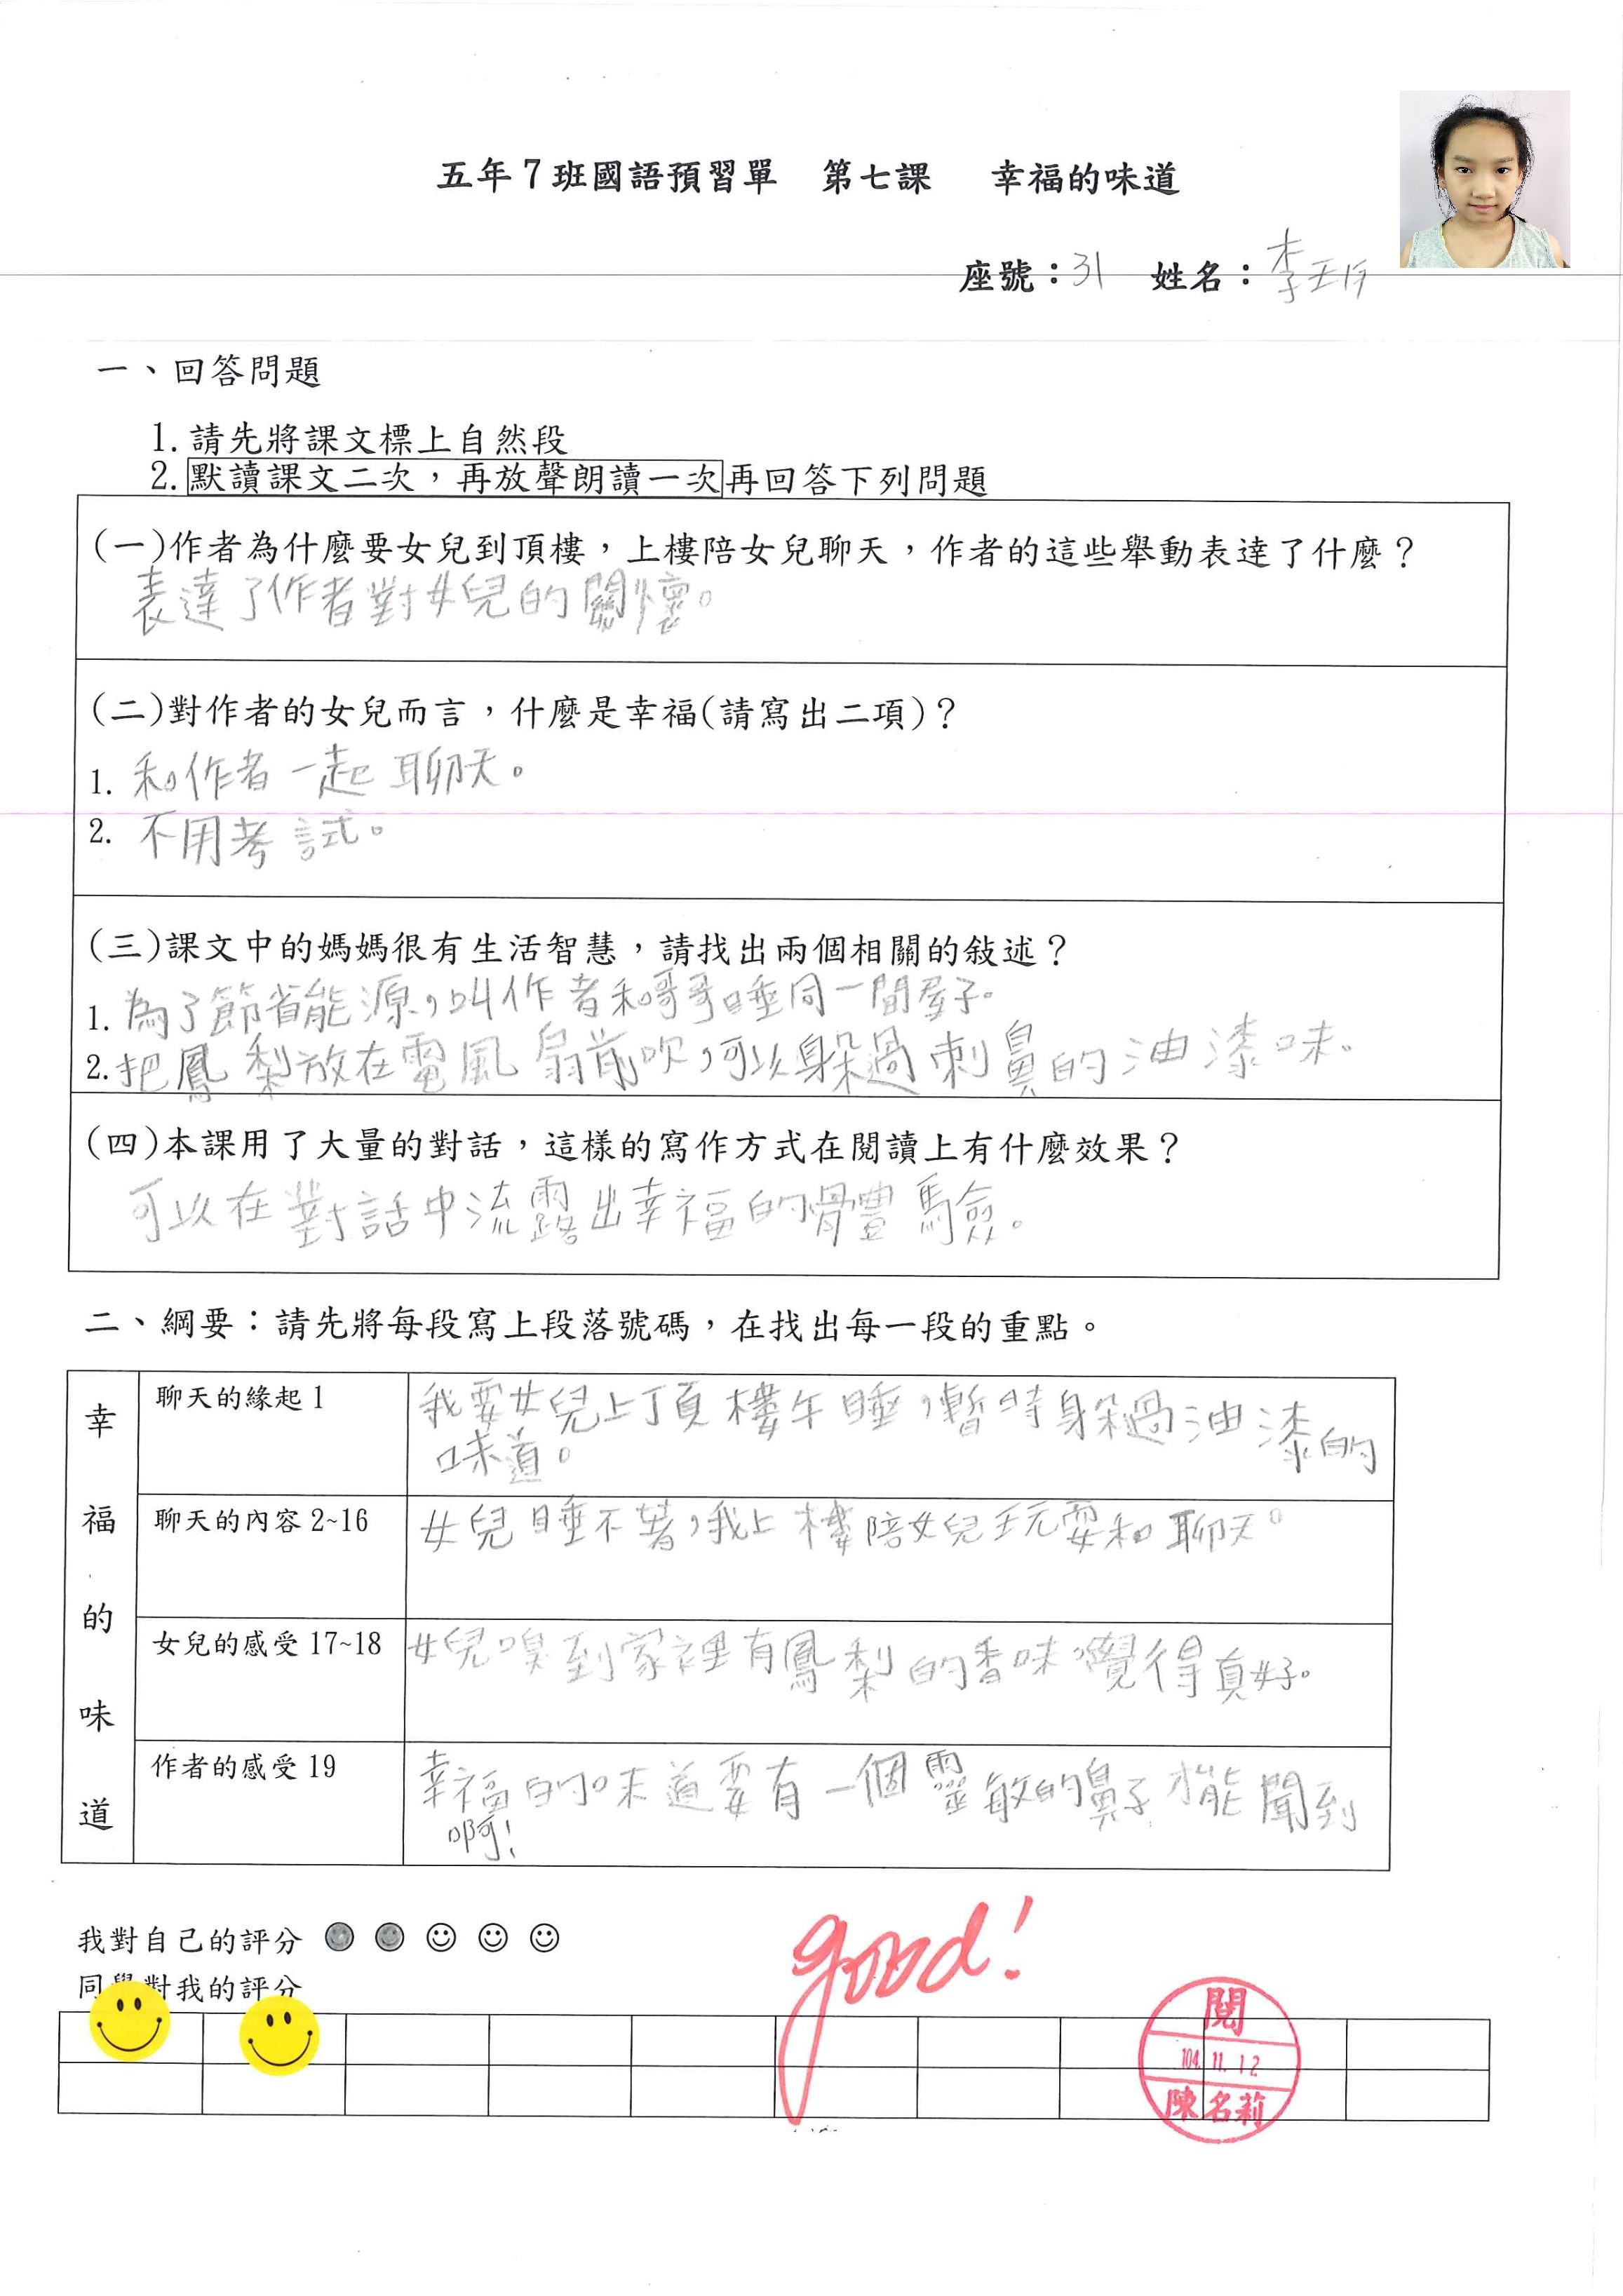 五年7班國語預習單 第七課 幸福的味道
座號：31 姓名：李
一、回答問題
1. 請先將課文標上自然段
2. 默讀課文二次，再放聲朗讀一次再回答下列問題
(一)作者為什麼要女兒到頂樓，上樓陪女兒聊天，作者的這些舉動表達了什麼？
表達了作者對女兒的關懷。
(二)對作者的女兒而言，什麼是幸福(請寫出二項)？
1. 和作者一起聊天。
2. 不用考試。
(三)課文中的媽媽很有生活智慧，請找出兩個相關的敍述？
1. 為了節省能源，叫作者和哥哥睡同一間房子。
2. 把鳳梨放在電風扇前吹，可以躲過刺鼻的油漆味。
(四)本課用了大量的對話，這樣的寫作方式在閱讀上有什麼效果？
可以在對話中流露出幸福的體驗。
二、綱要：請先將每段寫上段落號碼，在找出每一段的重點。
幸福的味道
聊天的緣起 1
我要女兒上頂樓午睡，暫時躲過油漆的
味道。
聊天的內容 2~16
女兒睡不著，我上樓陪女兒玩耍和聊天。
女兒的感受 17~18
女兒嗅到家裡有鳳梨的香味，覺得真好。
作者的感受 19
幸福的味道要有一個靈敏的鼻子才能聞到
啊！
我對自己的評分
同學對我的評分
good!
閱
104.11.12
陳名莉